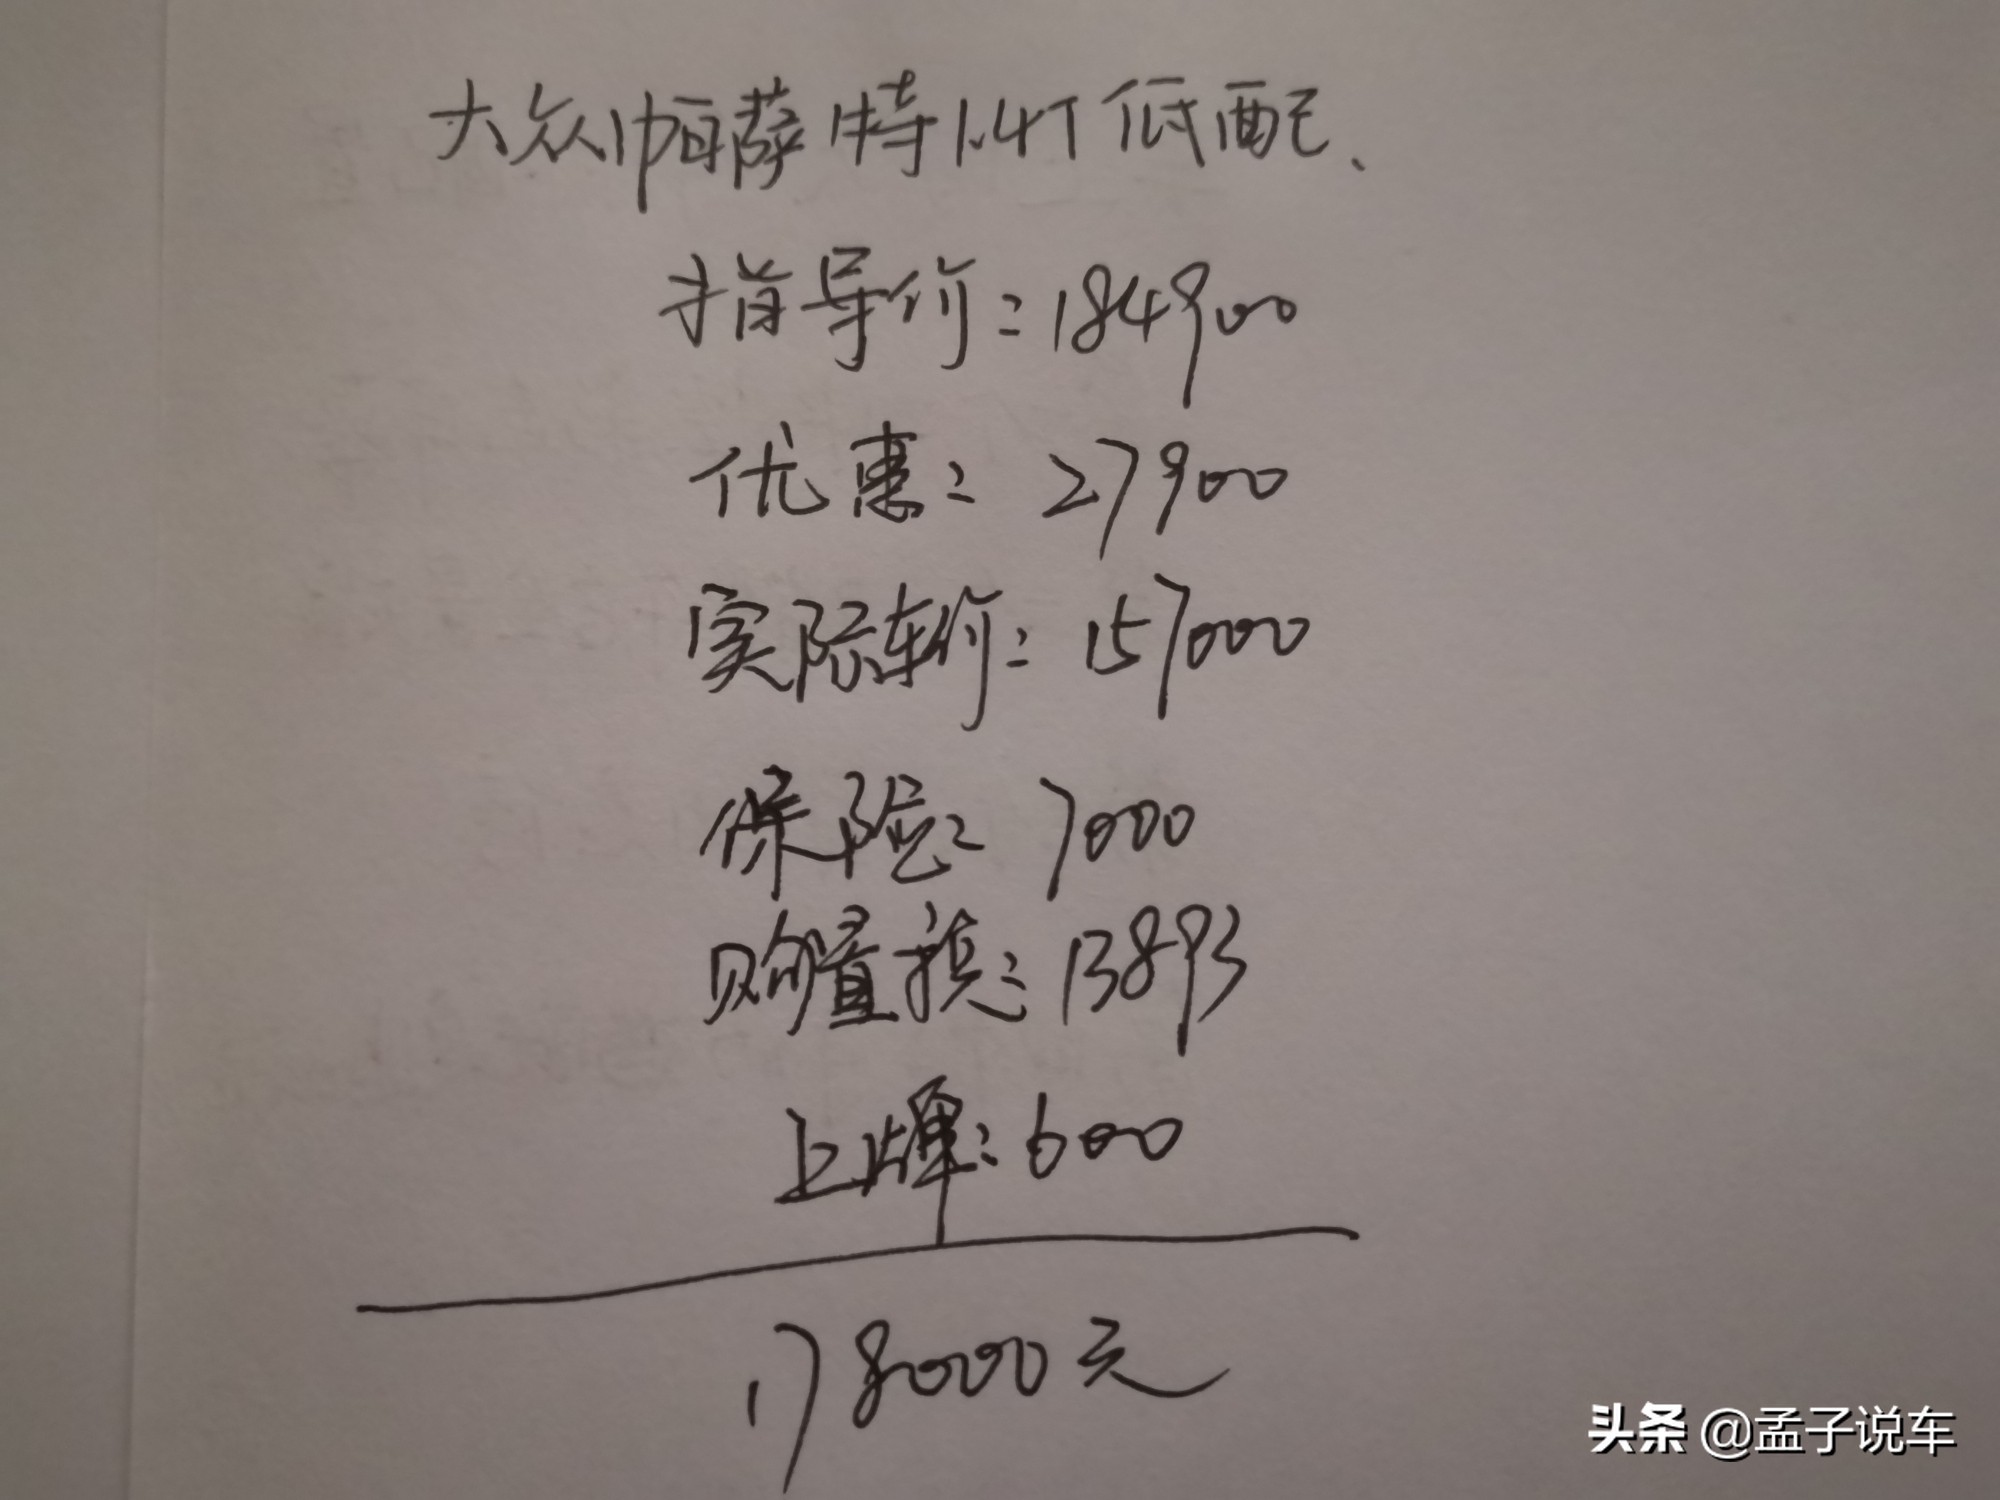 大众帕萨特1.4T低配、
指导价：184900
优惠：27900
实际车价：157000
保险：7000
购置税：13893
上牌：600
178000元
头条 @孟子说车